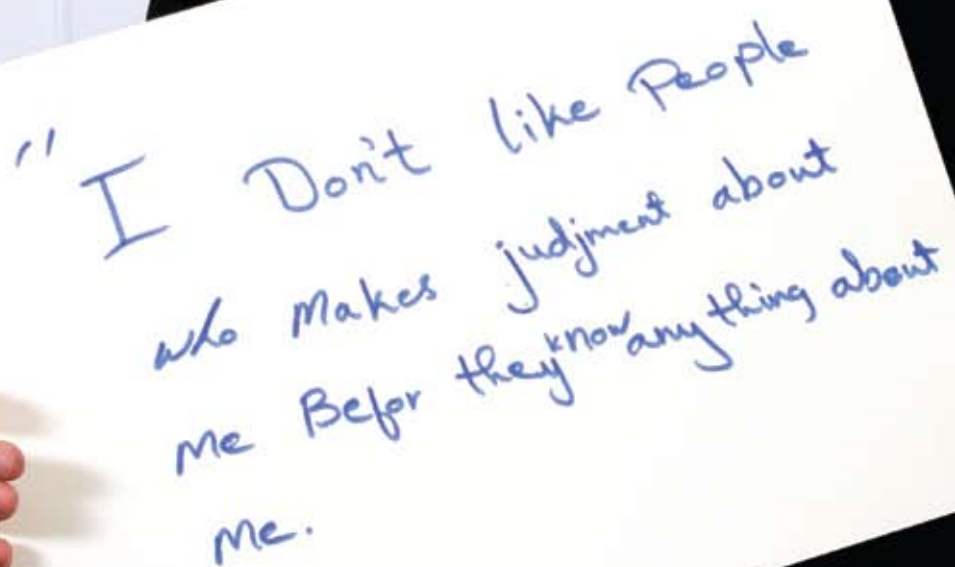 " I Don't like People
who makes judjment about
me Befor they know any thing about
me.